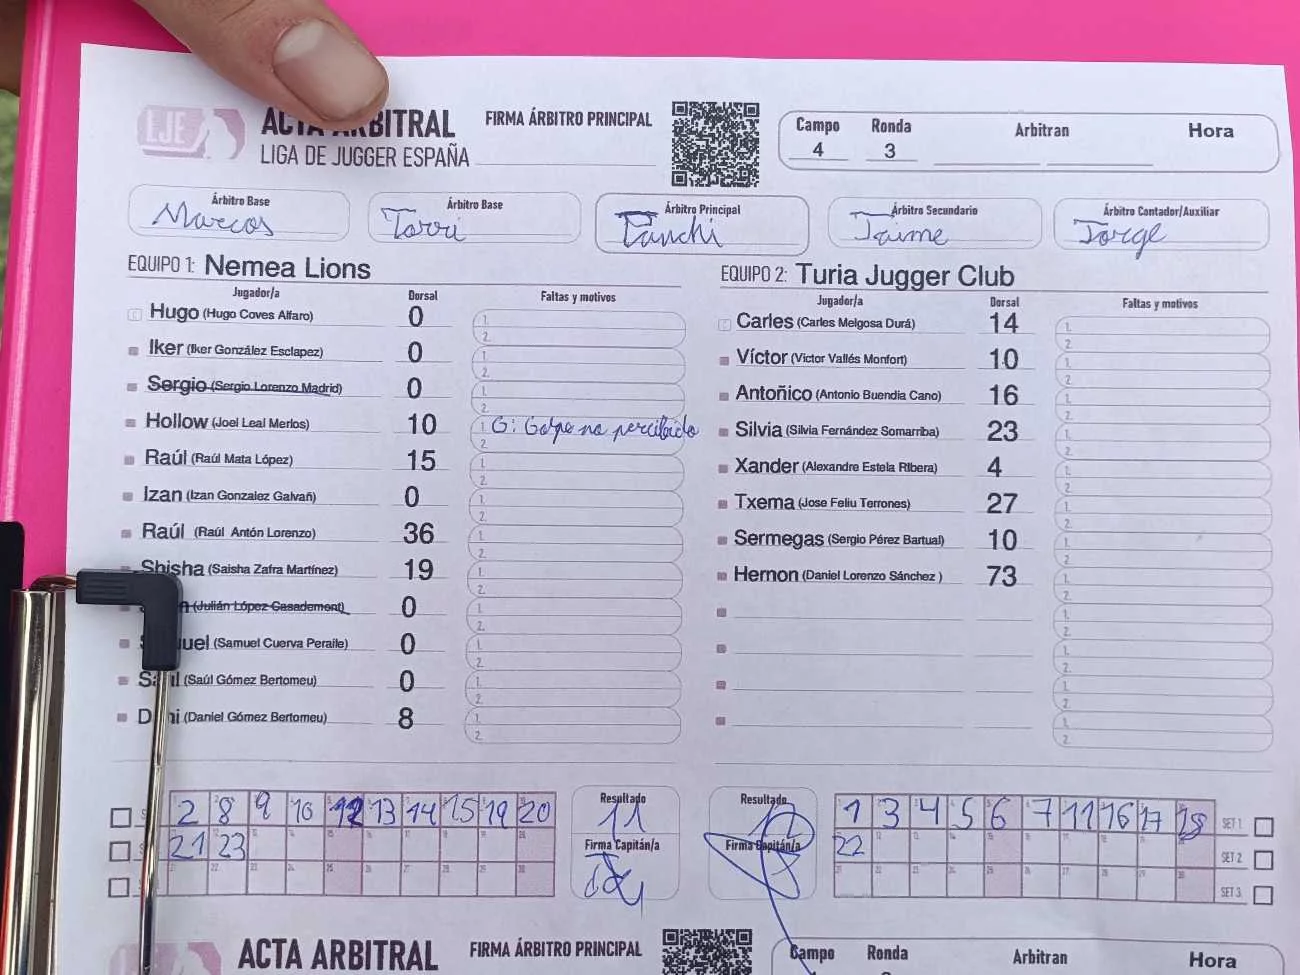 LJE
ACTA ARBITRAL
LIGA DE JUGGER ESPAÑA
FIRMA ÁRBITRO PRINCIPAL
Campo Ronda Arbitran Hora
4 3
Árbitro Base Árbitro Base Árbitro Principal Árbitro Secundario Árbitro Contador/Auxiliar
Marcos Torri Panchi Jaime Jorge
EQUIPO 1: Nemea Lions
Jugador/a Dorsal Faltas y motivos
Hugo (Hugo Coves Alfaro) 0 1. 2.
Iker (Iker González Esclapez) 0 1. 2.
Sergio (Sergio Lorenzo Madrid) 0 1. 2.
Hollow (Joel Leal Merlos) 10 1. G: Golpe no percibido 2.
Raúl (Raúl Mata López) 15 1. 2.
Izan (Izan Gonzalez Galvañ) 0 1. 2.
Raúl (Raúl Antón Lorenzo) 36 1. 2.
Shisha (Saisha Zafra Martínez) 19 1. 2.
(Julián López Casademont) 0 1. 2.
(Samuel Cuerva Peraile) 0 1. 2.
(Saúl Gómez Bertomeu) 0 1. 2.
(Daniel Gómez Bertomeu) 8 1. 2.
EQUIPO 2: Turia Jugger Club
Jugador/a Dorsal Faltas y motivos
Carles (Carles Melgosa Durá) 14 1. 2.
Víctor (Victor Vallés Monfort) 10 1. 2.
Antoñico (Antonio Buendia Cano) 16 1. 2.
Silvia (Silvia Fernández Somarriba) 23 1. 2.
Xander (Alexandre Estela RIbera) 4 1. 2.
Txema (Jose Feliu Terrones) 27 1. 2.
Sermegas (Sergio Pérez Bartual) 10 1. 2.
Hernon (Daniel Lorenzo Sánchez ) 73 1. 2.
1. 2.
1. 2.
1. 2.
1. 2.
2 8 9 10 12 13 14 15 19 20
21 23
Resultado
11
Firma Capitán/a
Resultado
Firma Capitán/a
1 3 4 5 6 7 11 16 17 18 SET 1
22 SET 2
SET 3
ACTA ARBITRAL
FIRMA ÁRBITRO PRINCIPAL
Campo Ronda Arbitran Hora